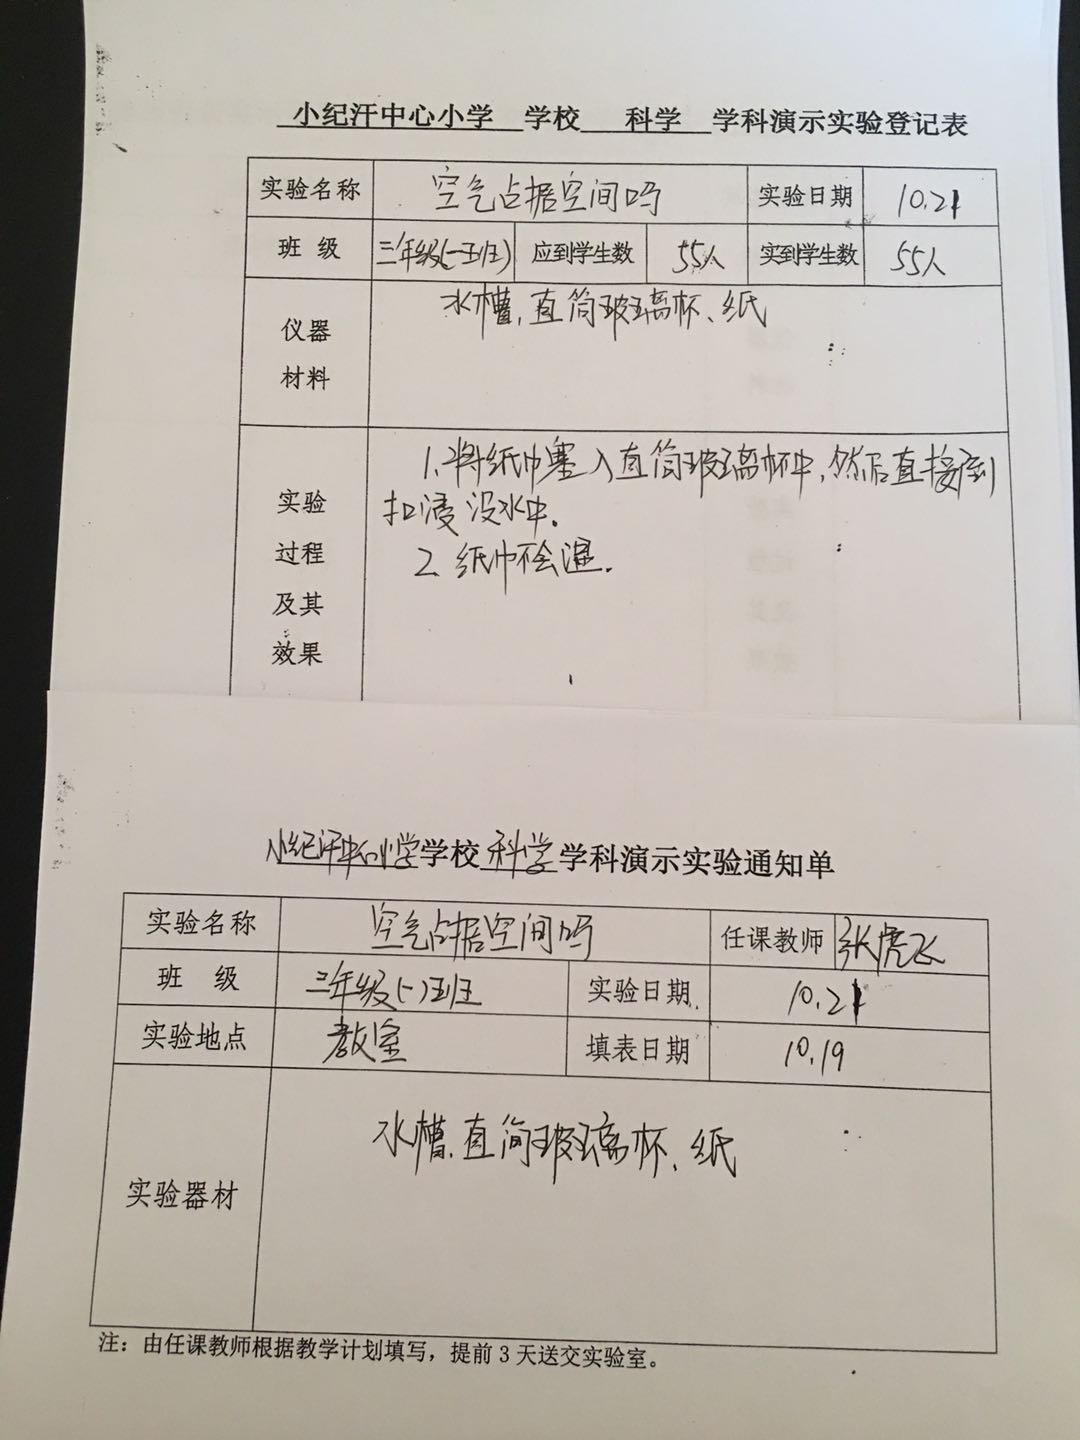 小纪汗中心小学 学校 科学 学科演示实验登记表
实验名称 空气占据空间吗 实验日期 10.21
班 级 三年级(一班) 应到学生数 55人 实到学生数 55人
仪器
材料
水槽,直筒玻璃杯、纸
实验
过程
及其
效果
1、将纸巾塞入直筒玻璃杯中,然后直接倒
扣浸没水中.
2、纸巾不会湿.
小纪汗中心小学学校科学学科演示实验通知单
实验名称 空气占据空间吗 任课教师 张虎飞
班 级 三年级(一)班 实验日期 10.21
实验地点 教室 填表日期 10.19
实验器材 水槽.直筒玻璃杯、纸
注：由任课教师根据教学计划填写，提前 3 天送交实验室。